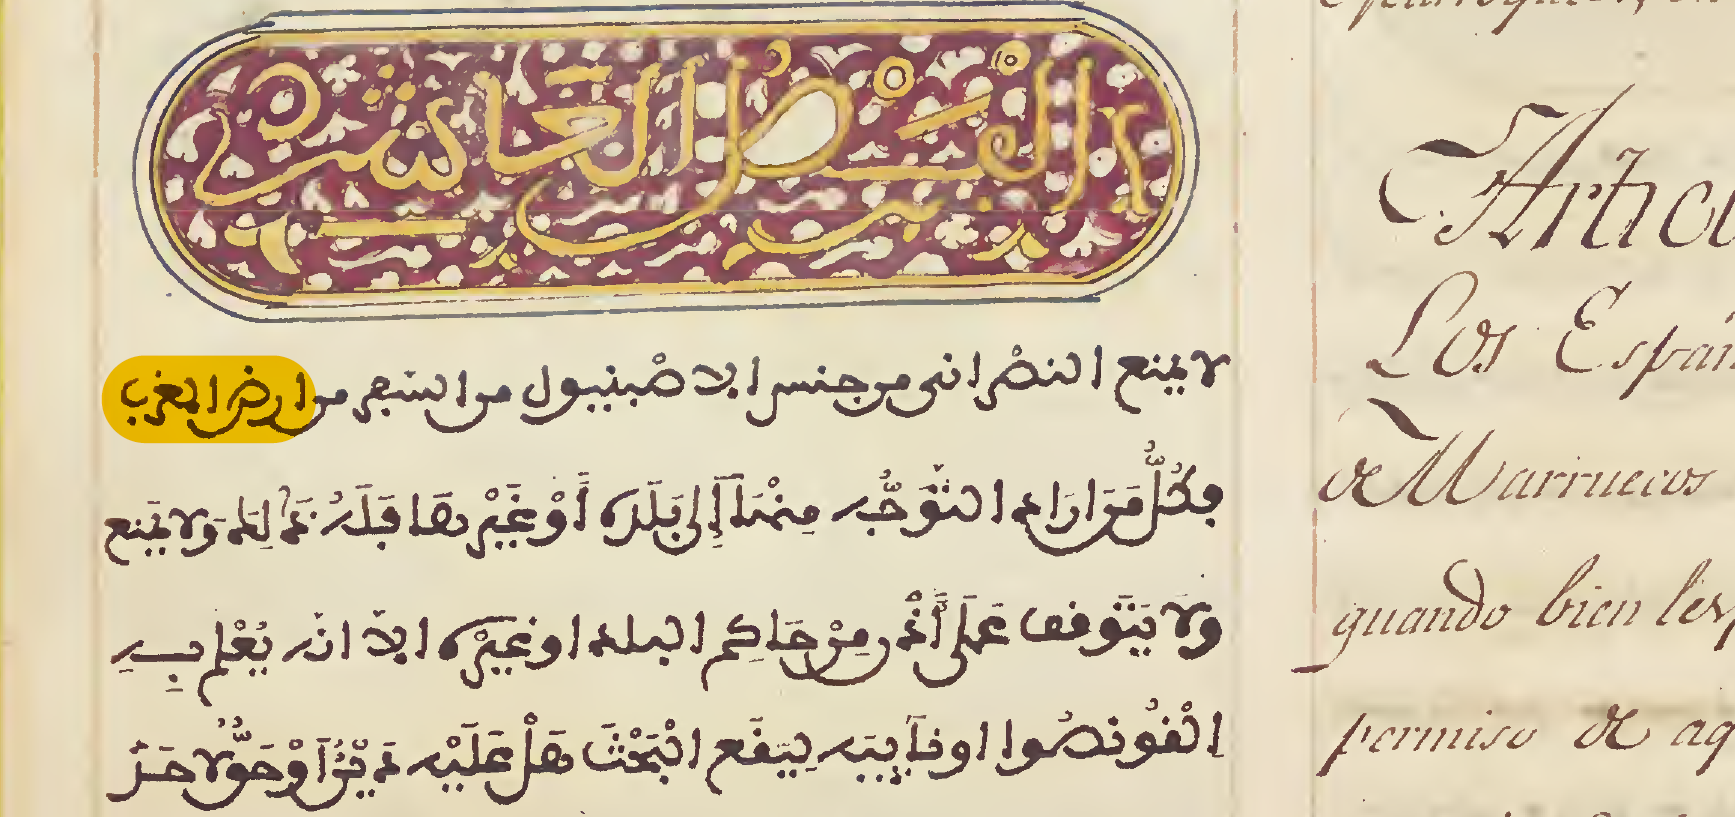 الشرط العاشر
لا يمنع النصراني من جنس الاصبنيول من السفر من ارض المغرب
فكُلُّ مَن ارَاد التَّوَجُّه مِنْهَا إِلى بَلَدِه أوْ غَيْرِهَا فَلَهُ ذَالِك وَلا يُمْنَع
وَلا يَتَوقف عَلى إذْن مِنْ حَاكِم البلد او غيْرِه الاّ انّه يُعْلِم بِه
الْقُونصُوا او نآيِبَه لِيَقَع الْبَحْثَ هَلْ عَلَيْه دَيْنٌ أوْ حَقٌّ لاحَدٍ
Articu
Los Españ
de Marruecos
quando bien les
permiso de aq